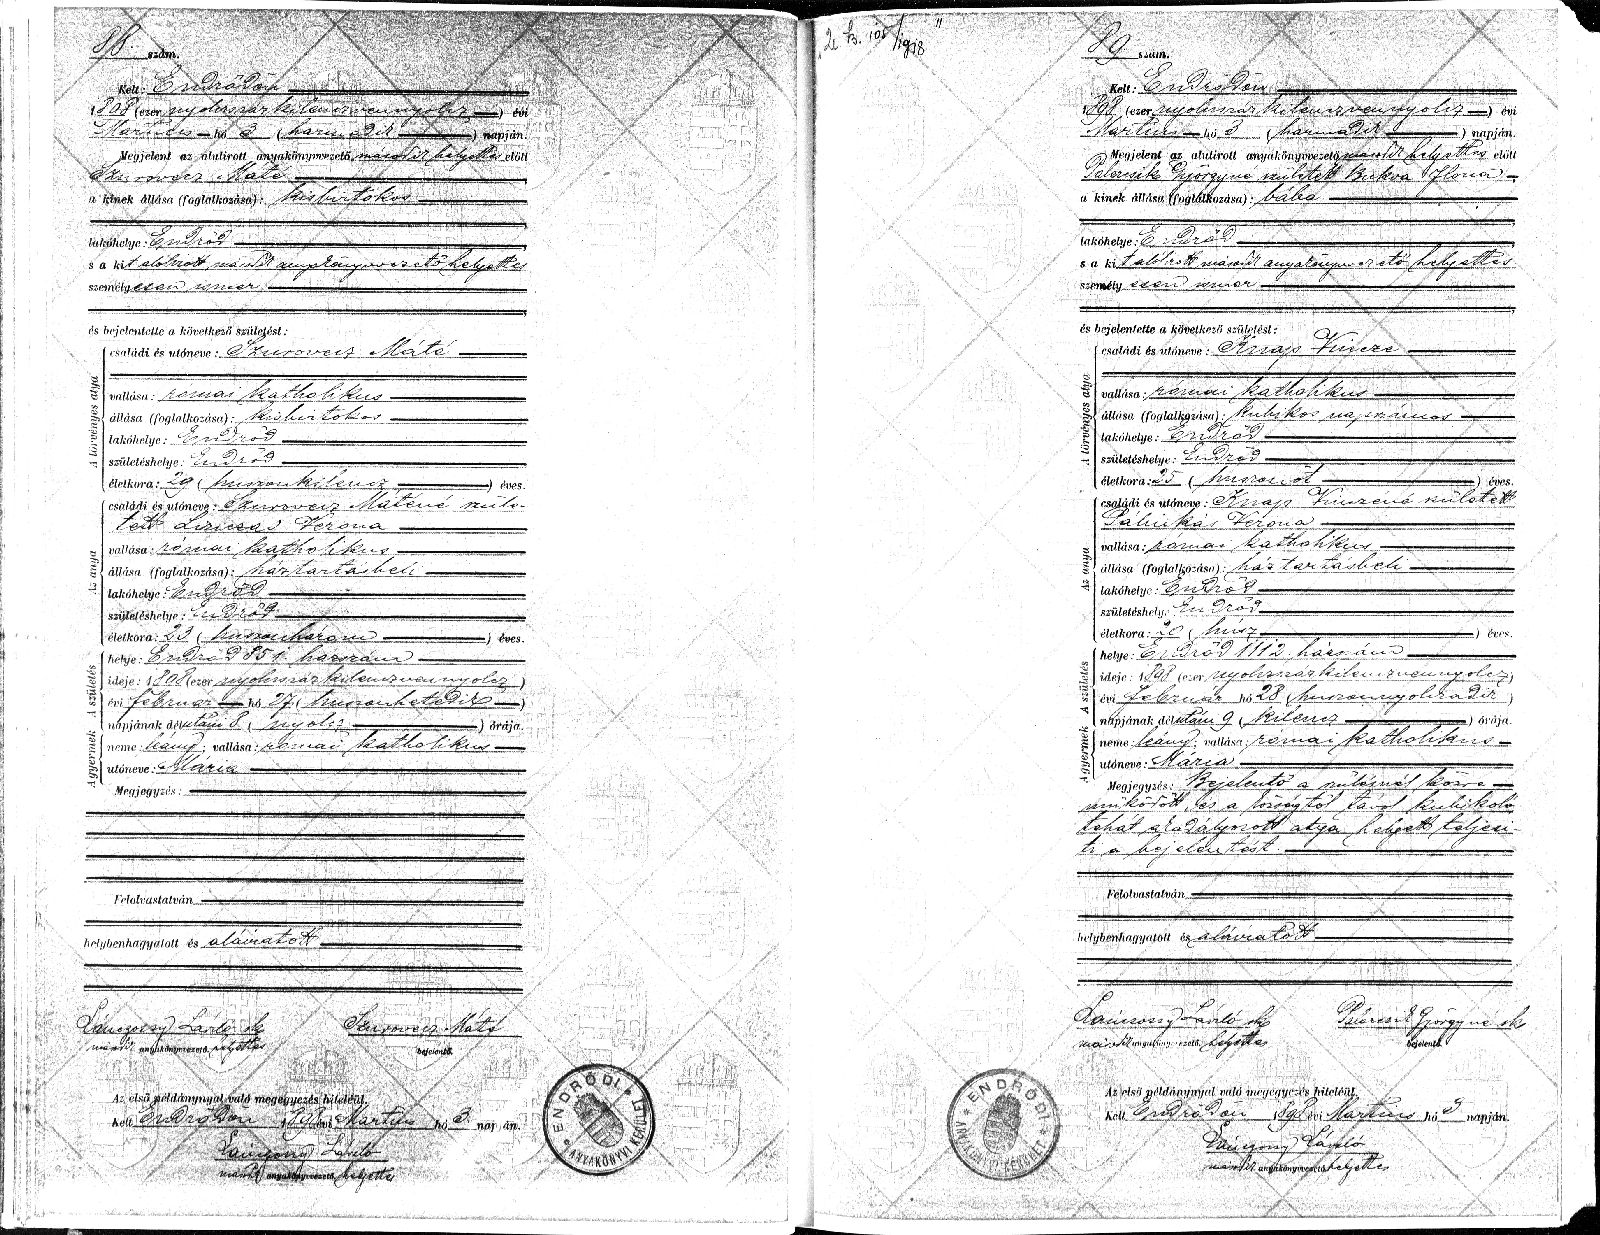 szám.
Kelt: Endrődön
1898 (ezer nyolcszázkilenczvennyolcz) évi
Martius hó 3 (harmadik) napján.
Megjelent az alulirott anyakönyvvezető másodk helyettes előtt
Szurovecz Máté
a kinek állása (foglalkozása): kisbirtokos
lakóhelye: Endrőd
s a kit alólirott másodk anyakönyvvezető helyettes
személyesen ismer
és bejelentette a következő születést:
A törvényes atya
családi és utóneve: Szurovecz Máté
vallása: római katholikus
állása (foglalkozása): kisbirtokos
lakóhelye: Endrőd
születéshelye: Endrőd
életkora: 29 (huszonkilencz) éves.
Az anya
családi és utóneve: Szurovecz Máténé szüle-
tett Verona
vallása: római katholikus
állása (foglalkozása): háztartásbeli
lakóhelye: Endrőd
születéshelye: Endrőd
életkora: 23 (huszonhárom) éves.
A születés
helye: Endrőd 851 házszám
ideje: 1898 (ezer nyolcszázkilenczvennyolcz)
évi február hó 27 (huszonhetedik)
napjának délután 8 (nyolcz) órája.
A gyermek
neme: leány; vallása: római katholikus
utóneve: Mária
Megjegyzés:
Felolvastatván
helybenhagyatott és aláiratott
Lánczony László sk
másodk anyakönyvvezető helyettes
Szurovecz Máté
bejelentő.
Az első példánynyal való megegyezés hiteléül.
Kelt Endrődön 1898 évi Martius hó 3 napján.
Lánczony László
másodk anyakönyvvezető helyettes
ENDRŐDI ANYAKÖNYVI KERÜLET
89 szám.
Kelt: Endrődön
1898 (ezer nyolcszázkilenczvennyolcz) évi
Martius hó 3 (harmadik) napján.
Megjelent az alulirott anyakönyvvezető másodk helyettes előtt
Györgyné született Bukva Ilona
a kinek állása (foglalkozása): bába
lakóhelye: Endrőd
s a kit alólirott másodk anyakönyvvezető helyettes
személyesen ismer
és bejelentette a következő születést:
A törvényes atya
családi és utóneve: Knap Vincze
vallása: római katholikus
állása (foglalkozása): kubikos napszámos
lakóhelye: Endrőd
születéshelye: Endrőd
életkora: 25 (huszonöt) éves.
Az anya
családi és utóneve: Knap Vinczéné született
Verona
vallása: római katholikus
állása (foglalkozása): háztartásbeli
lakóhelye: Endrőd
születéshely: Endrőd
életkora: 20 (húsz) éves.
A születés
helye: Endrőd 1112 házszám
ideje: 1898 (ezer nyolcszázkilenczvennyolcz)
évi február hó 28 (huszonnyolczadik)
napjának délután 9 (kilencz) órája.
A gyermek
neme: leány; vallása: római katholikus
utóneve: Mária
Megjegyzés: Bejelentő a szülésnél közre
működött, és a községtől távol kubikoló
tehát akadályozott atya helyett teljesi-
ti a bejelentést.
Felolvastatván
helybenhagyatott és aláiratott
Lánczony László sk
másodk anyakönyvvezető helyettes
Györgyné sk
bejelentő.
Az első példánynyal való megegyezés hiteléül.
Kelt Endrődön 1898 évi Martius hó 3 napján.
Lánczony László
másodk anyakönyvvezető helyettes
ENDRŐDI ANYAKÖNYVI KERÜLET